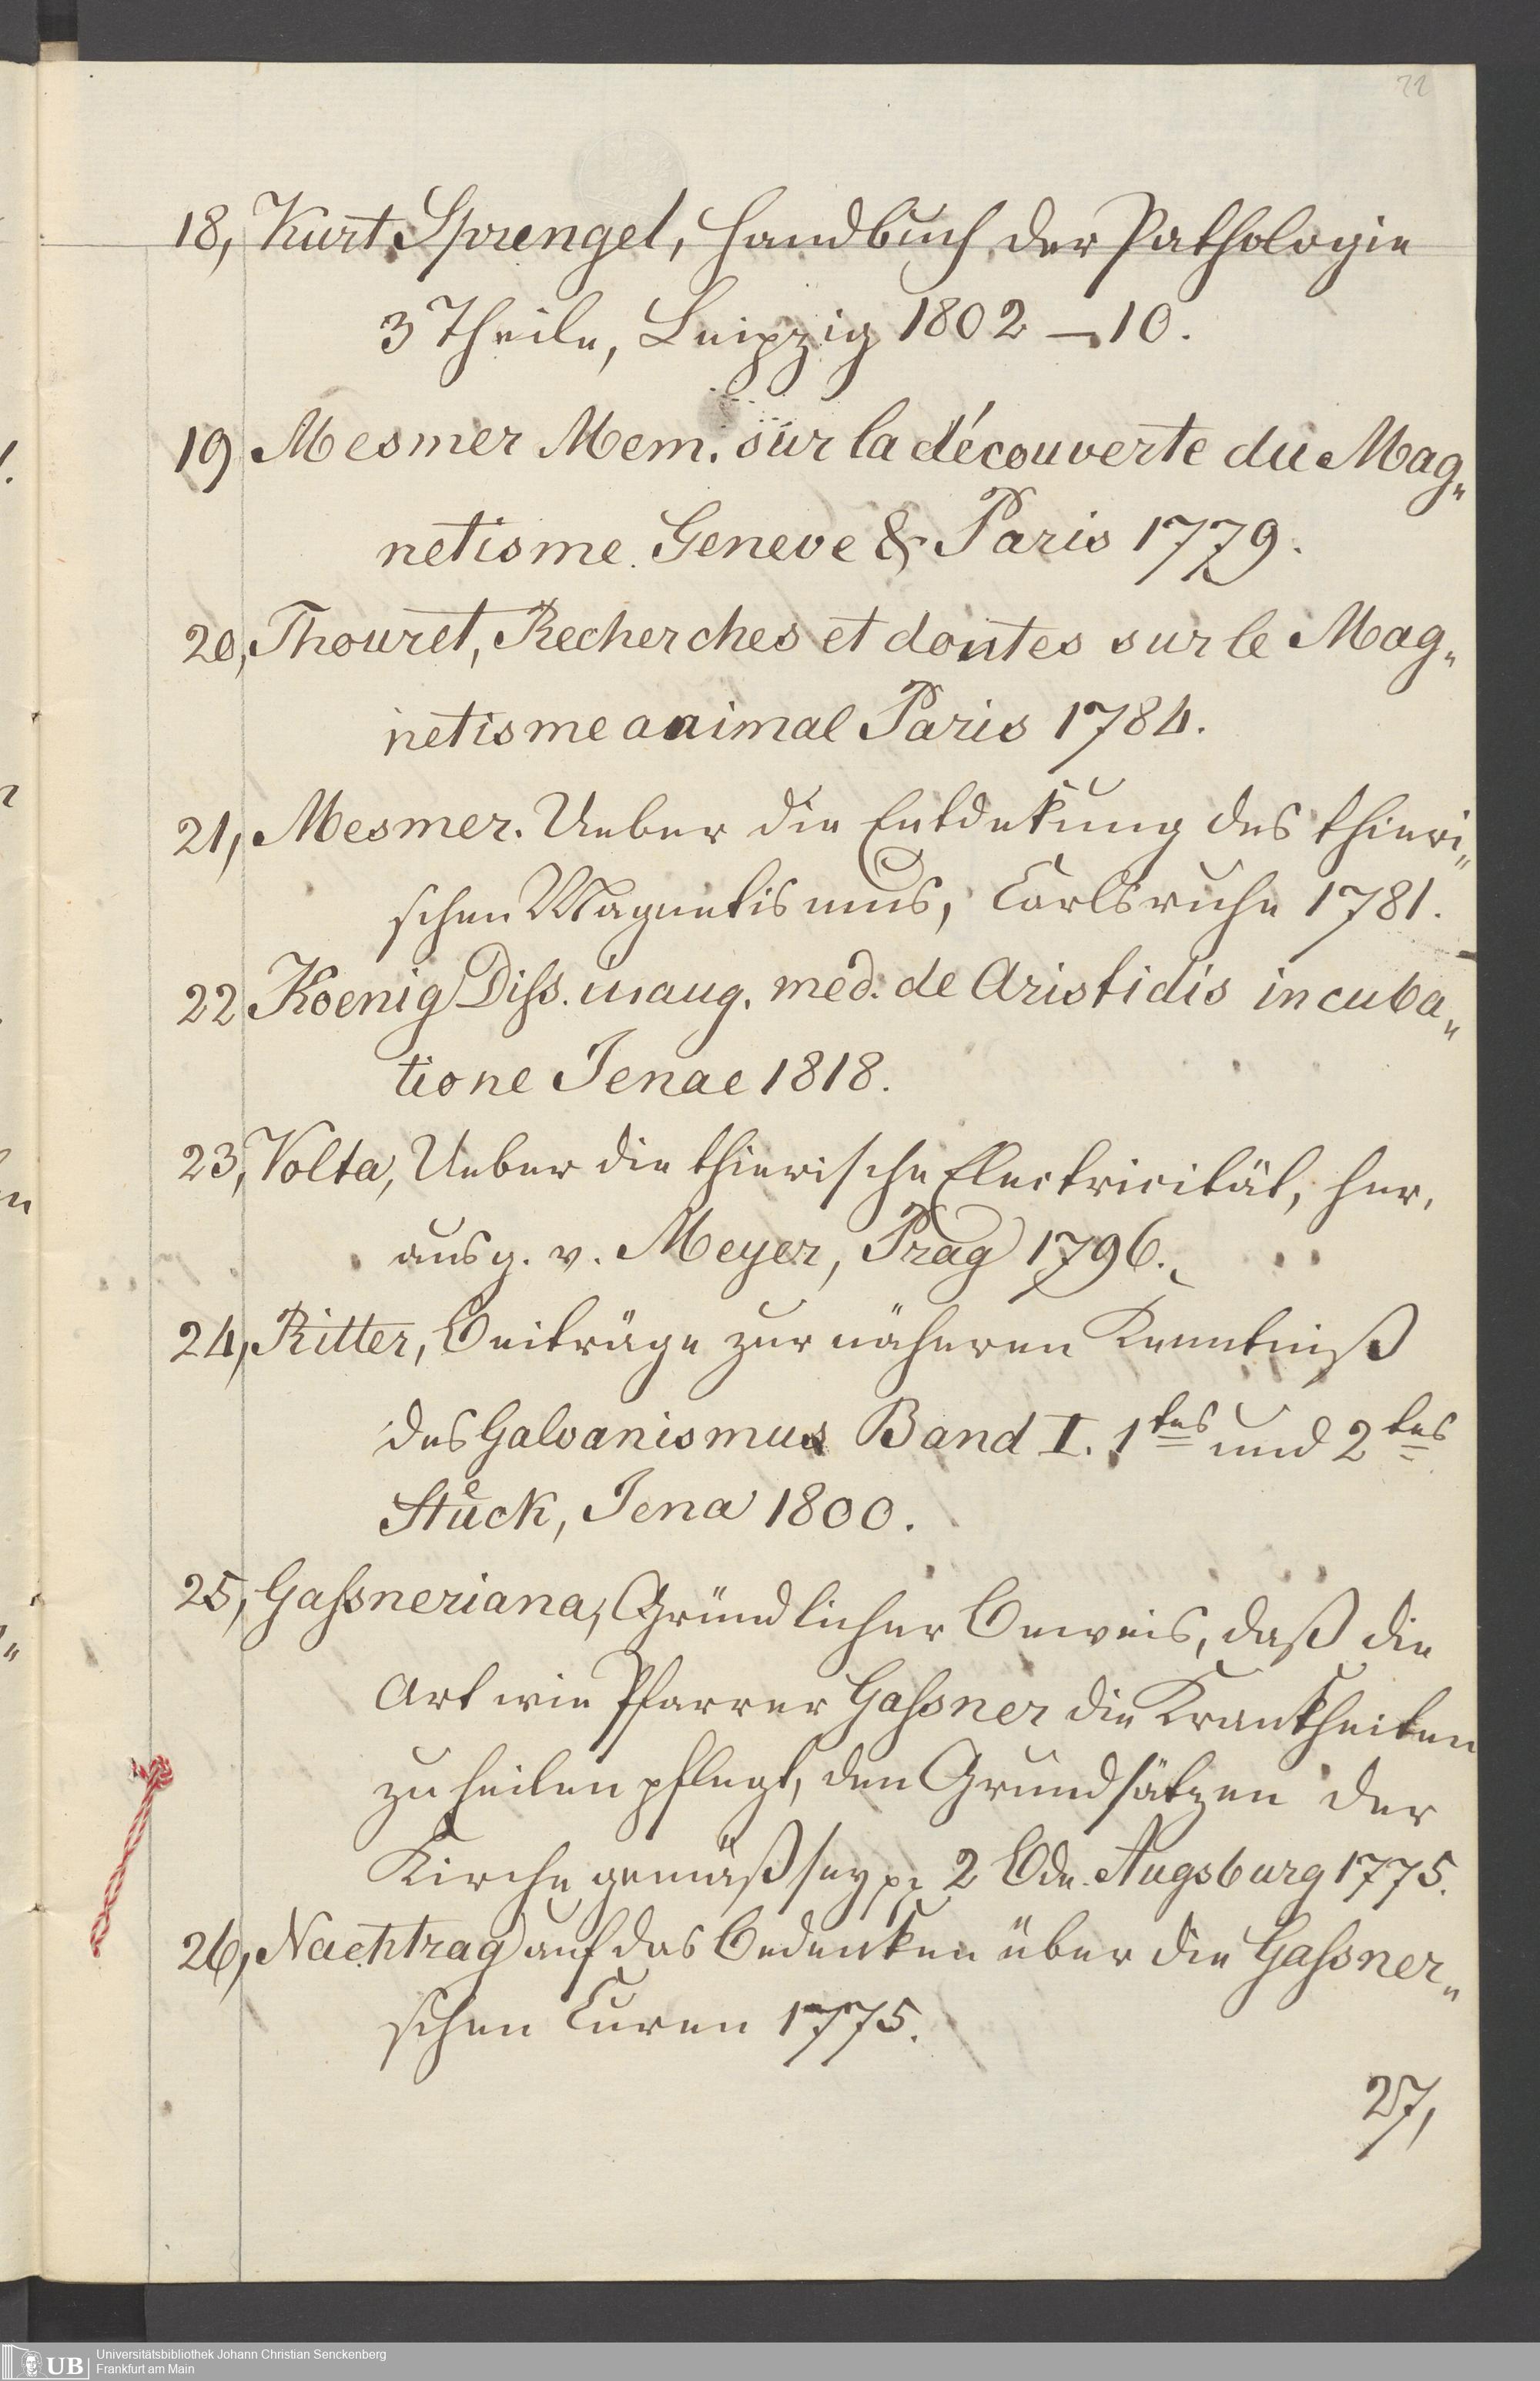 22
18, Kurt Sprengel, Handbuch der Pathologie
3 Theile, Leipzig 1802 – 10.
19 Mesmer Mem. sur la découverte du Mag„
netisme. Geneve & Paris 1779.
20, Thouret, Recherches et dontes sur le Mag„
netisme animal Paris 1784.
21, Mesmer. Ueber die Entdekung des thieri„
schen Magnetismus, Carlsruhe 1781.
22 Koenig Diss. inaug. med. de Aristidis incuba„
tione Jenae 1818.
23, Volta, Ueber die thierische Electricität, her,
ausg. v. Meyer, Prag 1796.
24, Ritter, Beiträge zur näheren Kenntniß
des Galvanismus Band I. 1tes und 2tes
Stück, Jena 1800.
25, Gassneriana, Gründlicher Beweis, daß die
Art wie Pfarrer Gassner die Krankheiten
zu heilen pflegt, den Grundsätzen der
Kirche gemäß sey pp 2 Bde. Augsburg 1775.
26, Nachtrag auf das Bedenken über die Gassner„
schen Curen 1775.
27,
UB
Universitätsbibliothek Johann Christian Senckenberg
Frankfurt am Main